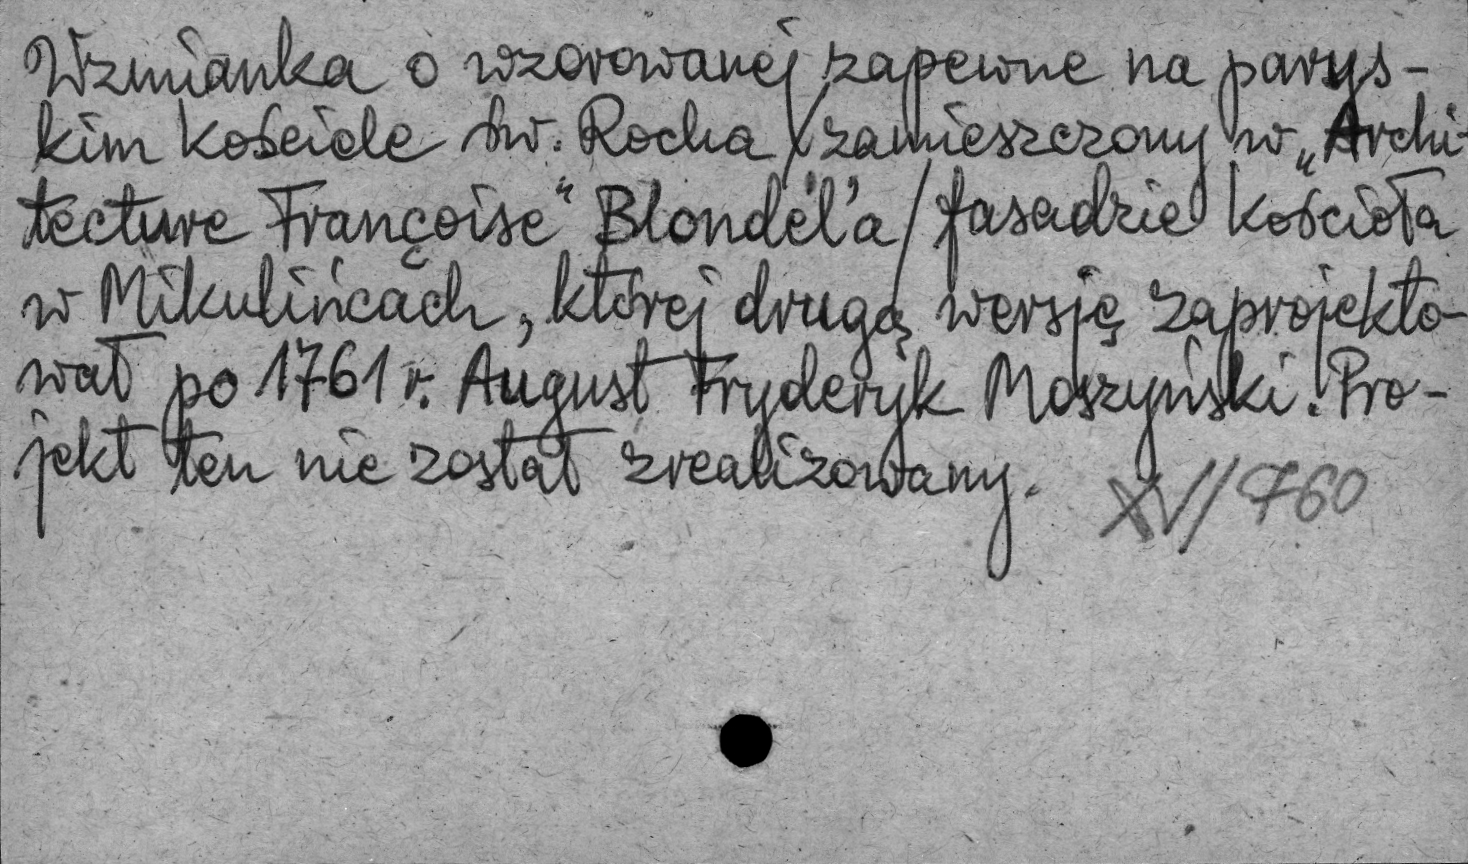 Wzmianka o wzorowanej zapewne na parys-
kim kościele św. Rocha /zamieszczony w „Archi-
tecture Françoise" Blondel'a/ fasadzie kościoła
w Mikulińcach, której drugą wersję zaprojekto-
wał po 1761 r. August Fryderyk Moszyński. Pro-
jekt ten nie został zrealizowany.
XV/760